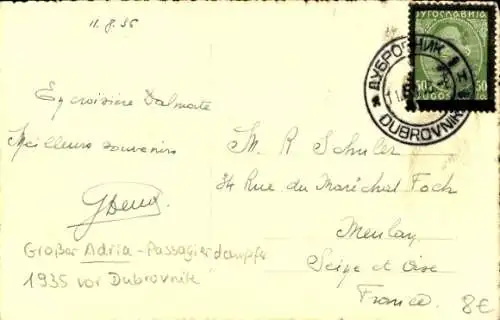 11.8.35
ЈУГОСЛАВИЈА
50 50
ДУБРОВНИК
DUBROVNIK
En croisière Dalmate
Meilleurs souvenirs
M. R Schuler
34 Rue du Maréchal Foch
Meulan
Seine et Oise
France.
Großer Adria-Passagierdampfer
1935 vor Dubrovnik
8€